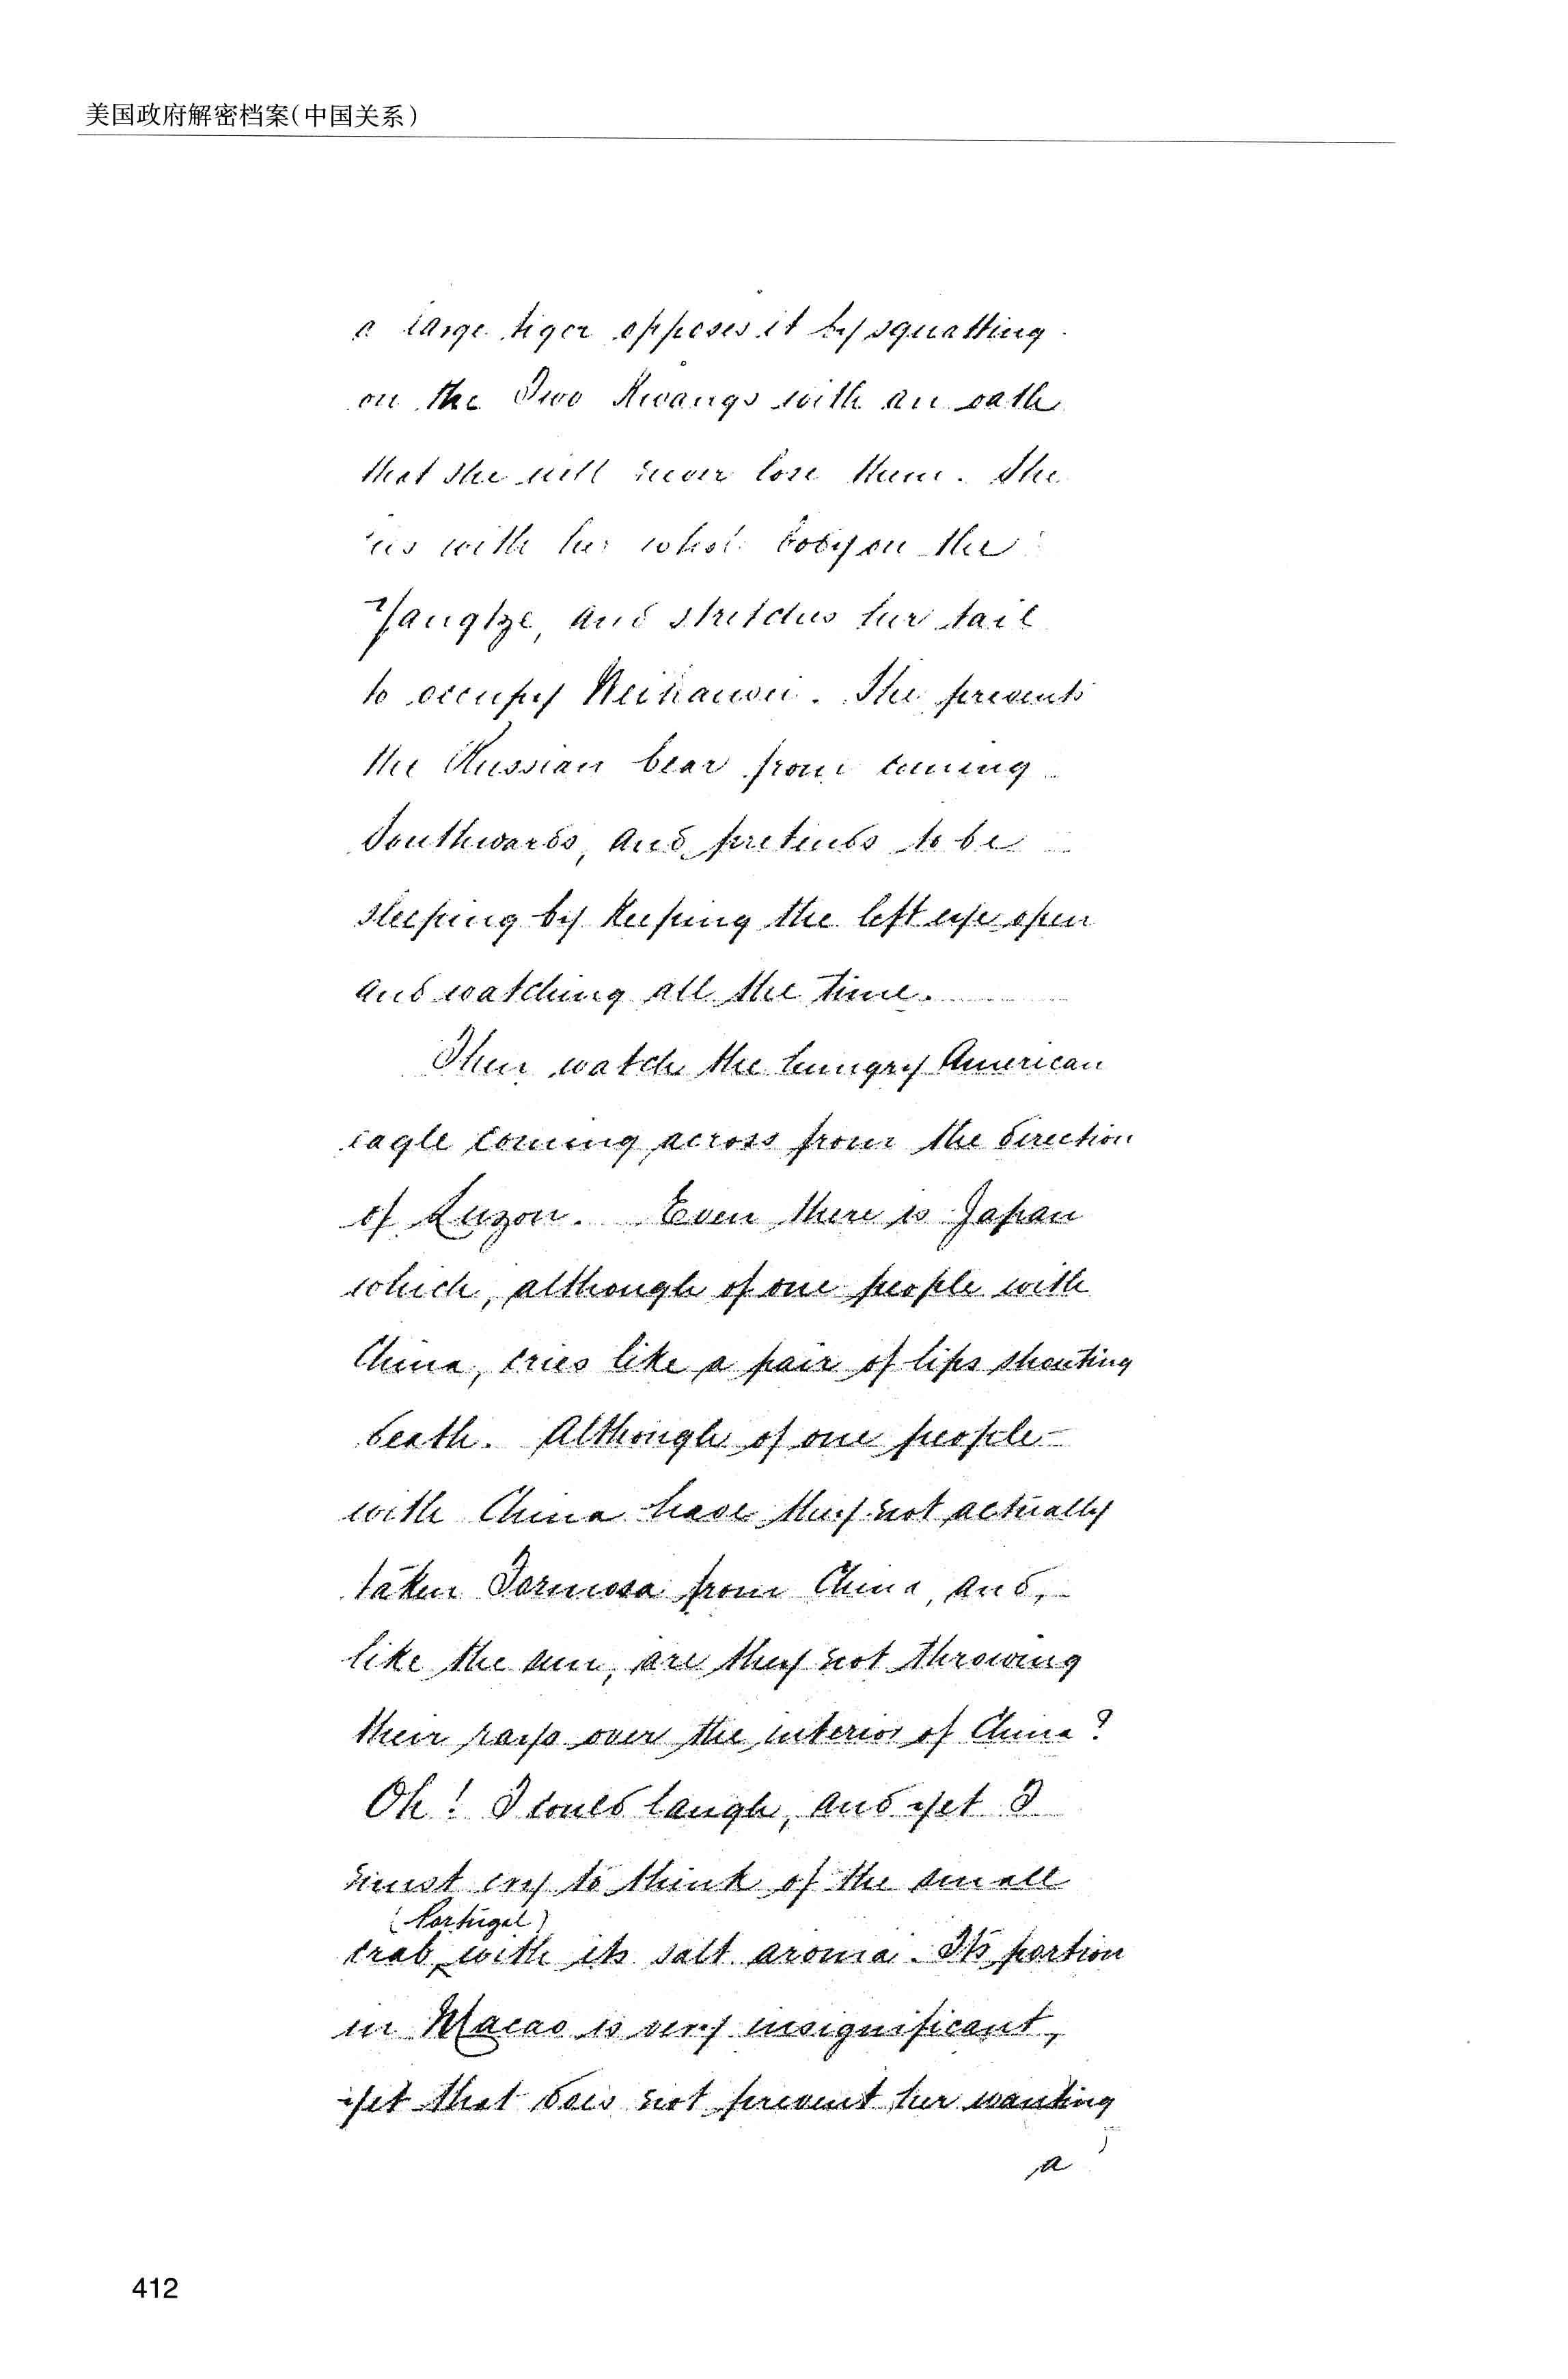 美国政府解密档案(中国关系)
a large tiger opposes it by squatting
on the Two Kwangs with an oath
that she will never lose them. She
lies with her whole body on the
Yangtze, and stretches her tail
to occupy Weihaiwei. She prevents
the Russian bear from coming
Southwards, and pretends to be
sleeping by keeping the left eye open
and watching all the time.
Then watch the hungry American
eagle coming across from the direction
of Luzon. Even there is Japan
which, although of one people with
China, cries like a pair of lips shouting
death. Although of one people
with China have they not actually
taken Formosa from China, and,
like the sun, are they not throwing
their rays over the interior of China?
Oh! I could laugh, and yet I
must cry to think of the small
(Portugal)
crab with its salt aroma. Its portion
in Macao is very insignificant,
yet that does not prevent her wanting
a
412